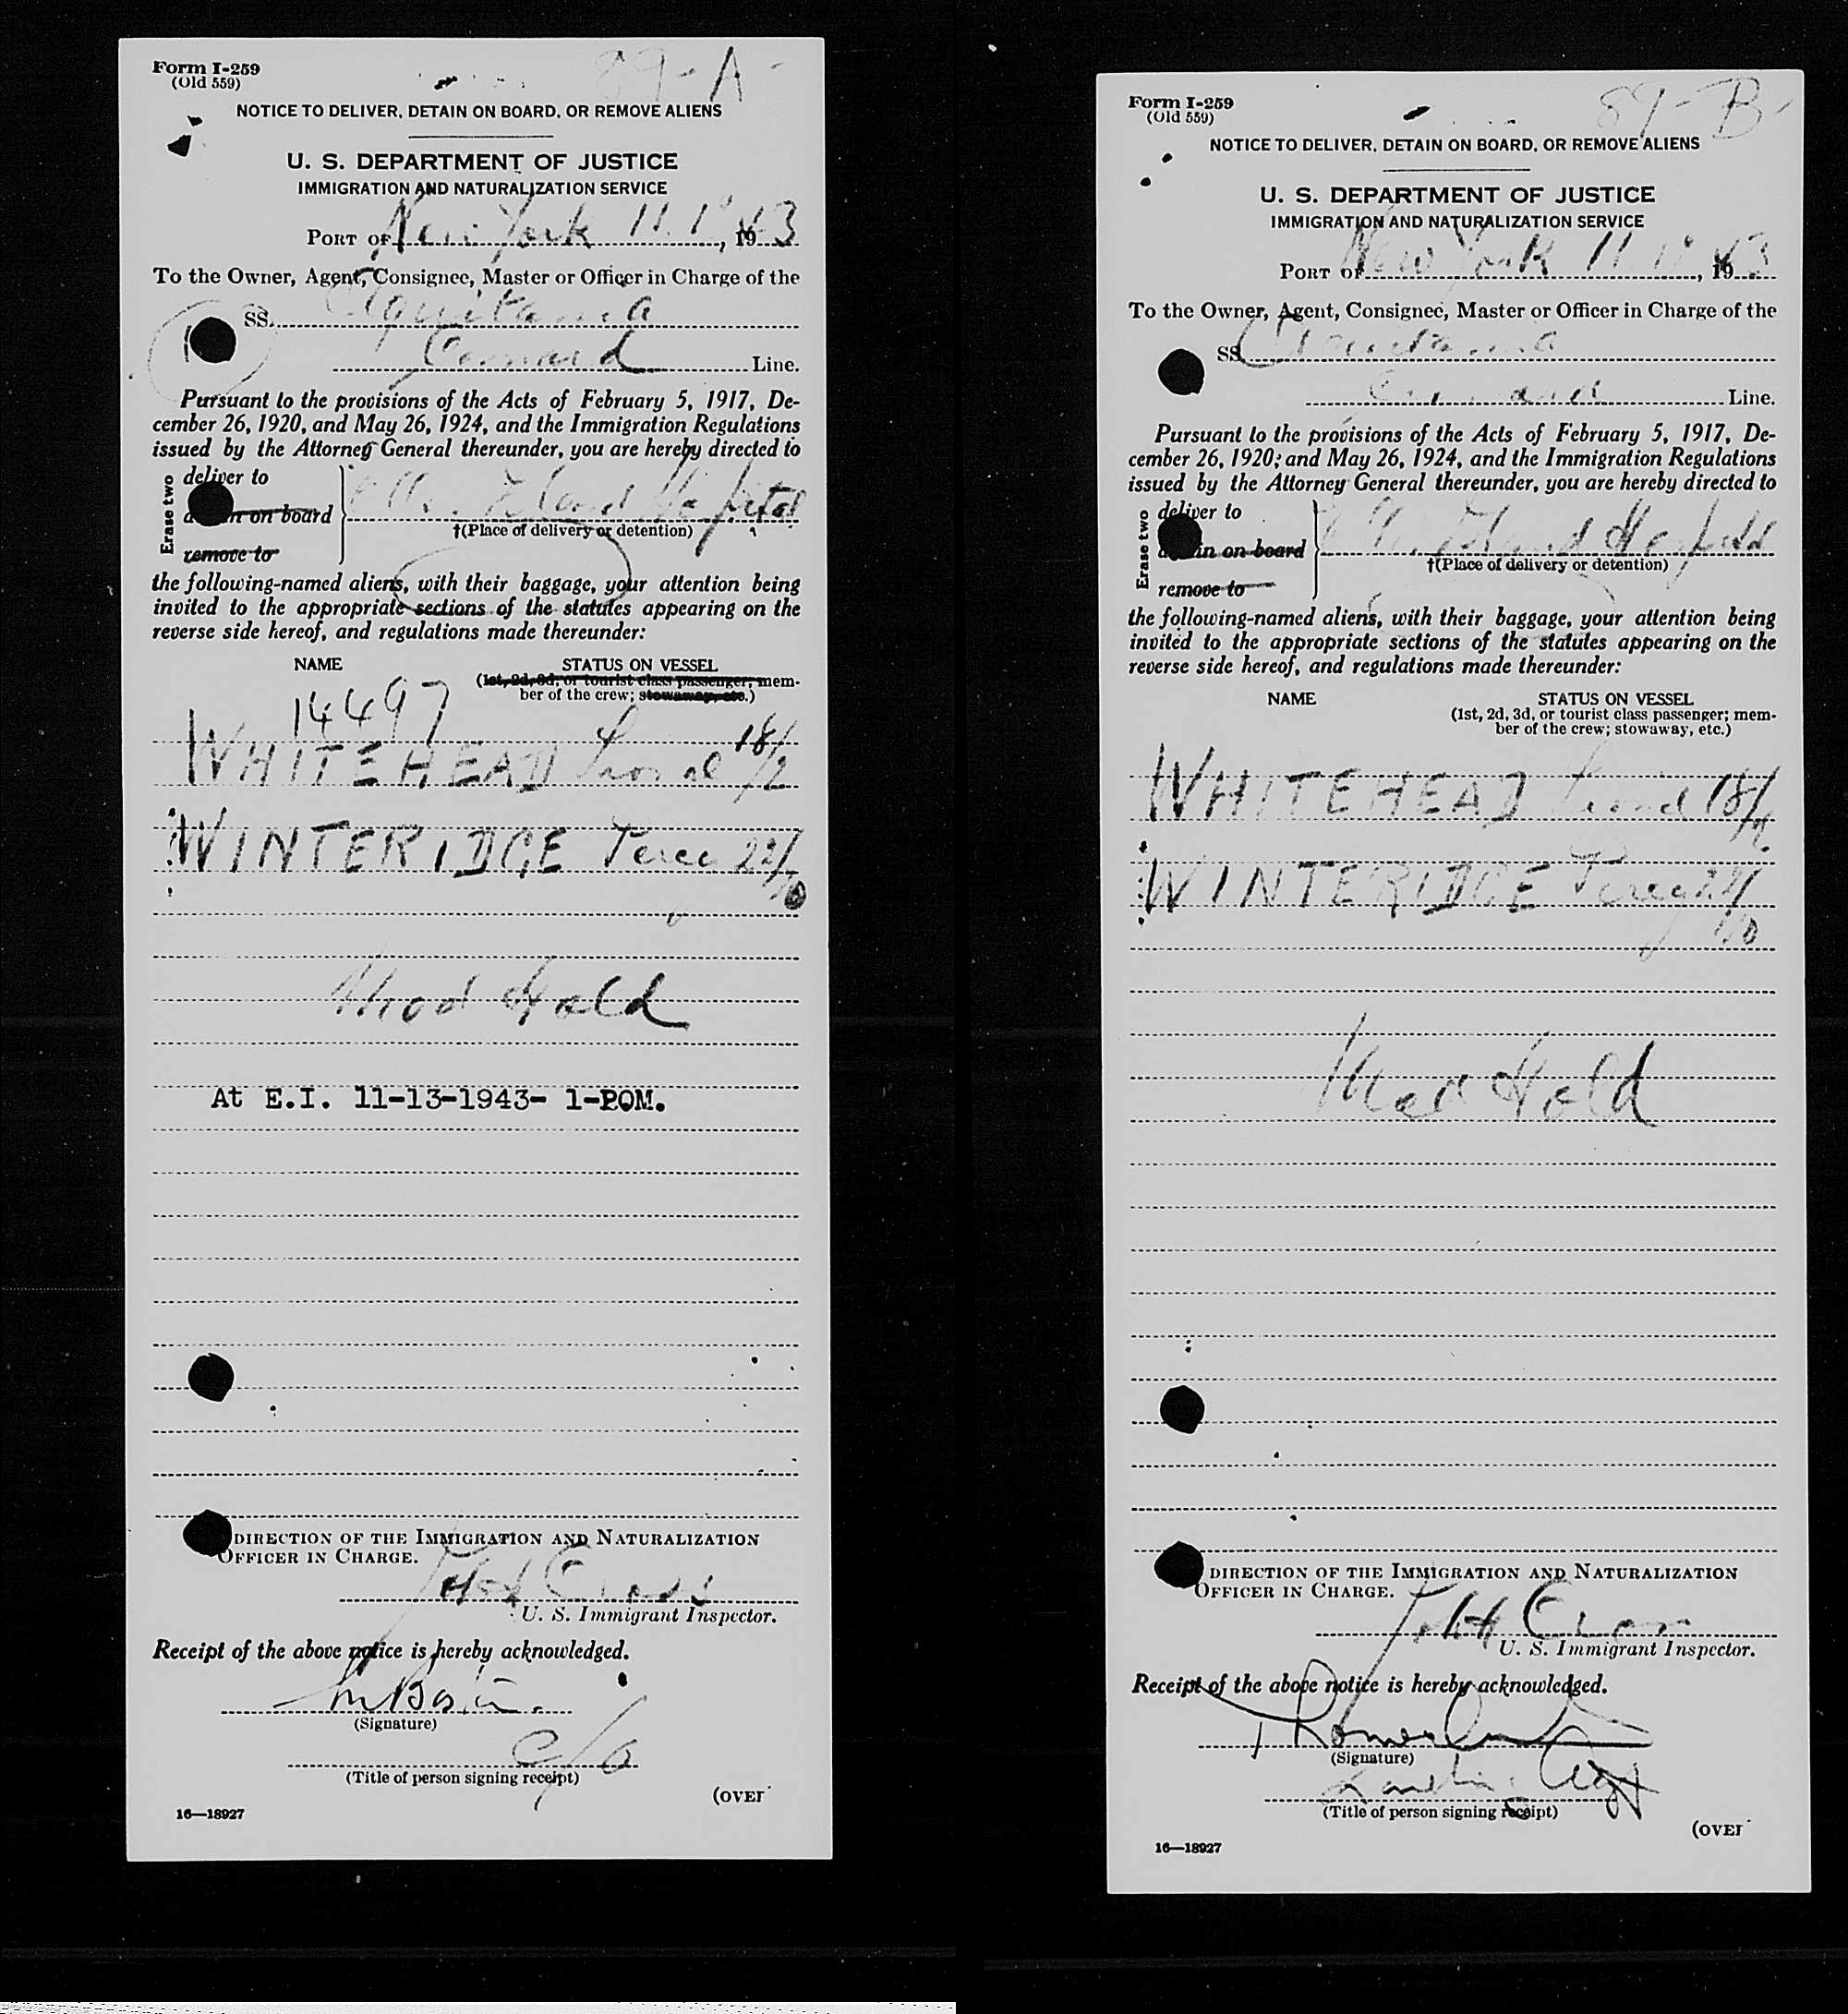 89-A-
Form I-259
(Old 559)
NOTICE TO DELIVER, DETAIN ON BOARD, OR REMOVE ALIENS
U. S. DEPARTMENT OF JUSTICE
IMMIGRATION AND NATURALIZATION SERVICE
PORT OF New York 11.1 , 1943
To the Owner, Agent, Consignee, Master or Officer in Charge of the
SS. Aquitania
Cunard Line.
Pursuant to the provisions of the Acts of February 5, 1917, De-
cember 26, 1920, and May 26, 1924, and the Immigration Regulations
issued by the Attorney General thereunder, you are hereby directed to
Erase two
deliver to
on board
Ellis Island Hospital
†(Place of delivery or detention)
remove to
the following-named aliens, with their baggage, your attention being
invited to the appropriate sections of the statutes appearing on the
reverse side hereof, and regulations made thereunder:
NAME STATUS ON VESSEL
(1st, 2d, 3d, or tourist class passenger; mem-
ber of the crew; stowaway, etc.)
14497
WHITEHEAD Lionel 18/2
WINTERIDGE Percy 22/10
Med Hold
At E.I. 11-13-1943- 1-POM.
DIRECTION OF THE IMMIGRATION AND NATURALIZATION
OFFICER IN CHARGE.
U. S. Immigrant Inspector.
Receipt of the above notice is hereby acknowledged.
(Signature)
(Title of person signing receipt)
(OVER
16—18927
89-B-
Form I-259
(Old 559)
NOTICE TO DELIVER, DETAIN ON BOARD, OR REMOVE ALIENS
U. S. DEPARTMENT OF JUSTICE
IMMIGRATION AND NATURALIZATION SERVICE
PORT OF New York 11 , 1943
To the Owner, Agent, Consignee, Master or Officer in Charge of the
SS Aquitania
Cunard Line.
Pursuant to the provisions of the Acts of February 5, 1917, De-
cember 26, 1920, and May 26, 1924, and the Immigration Regulations
issued by the Attorney General thereunder, you are hereby directed to
Erase two
deliver to
in on board
Ellis Island Hospital
†(Place of delivery or detention)
remove to
the following-named aliens, with their baggage, your attention being
invited to the appropriate sections of the statutes appearing on the
reverse side hereof, and regulations made thereunder:
NAME STATUS ON VESSEL
(1st, 2d, 3d, or tourist class passenger; mem-
ber of the crew; stowaway, etc.)
WHITEHEAD Lionel 18/2
WINTERIDGE Percy 22/10
Med Hold
DIRECTION OF THE IMMIGRATION AND NATURALIZATION
OFFICER IN CHARGE.
U. S. Immigrant Inspector.
Receipt of the above notice is hereby acknowledged.
(Signature)
(Title of person signing receipt)
(OVER
16—18927